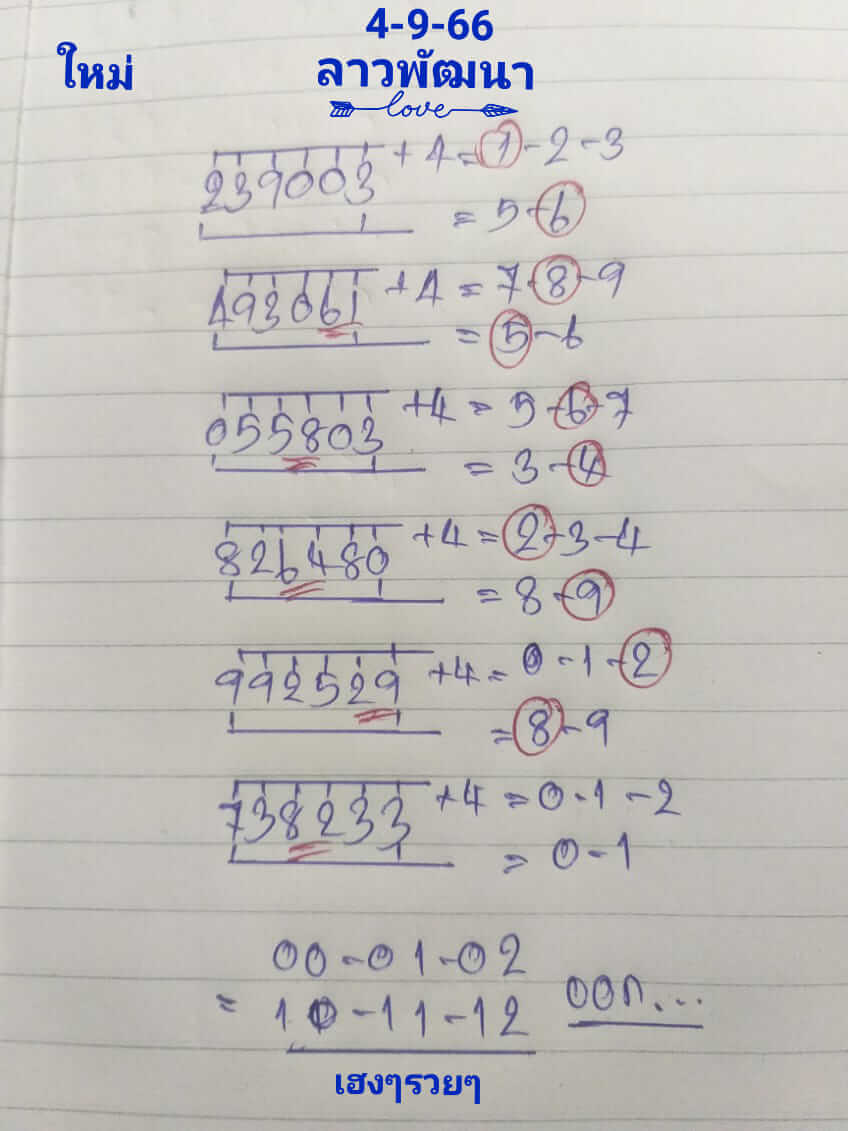 4-9-66
ใหม่ ลาวพัฒนา
love
239003 +4=1-2-3
= 5-6
493061 +4 = 7-8-9
= 5-6
055803 +4 = 5-6-7
= 3-4
826480 +4 = 2-3-4
= 8-9
992529 +4 = 0-1-2
= 8-9
738233 +4 = 0-1-2
= 0-1
00-01-02
= 10-11-12 ออก...
เฮงๆรวยๆ